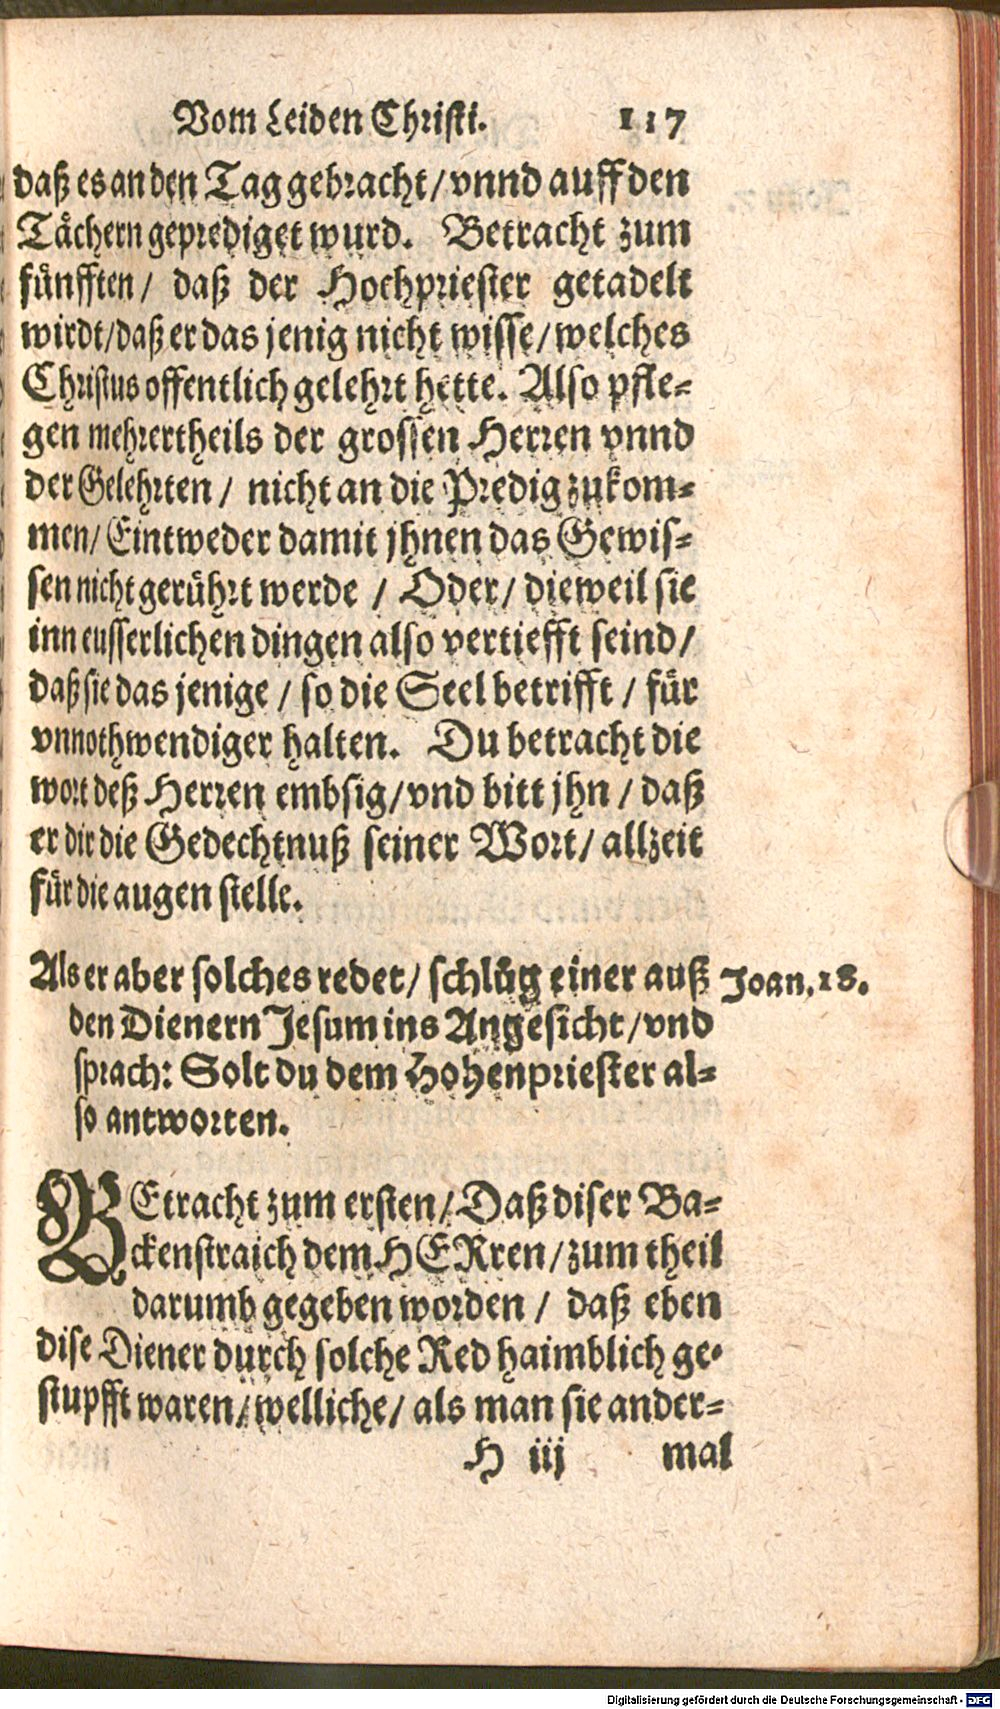 Vom Leiden Christi. 117
daß es an den Tag gebracht/ vnnd auff den
Tächern geprediget wurd. Betracht zum
fünfften/ daß der Hochpriester getadelt
wirdt/ daß er das jenig nicht wisse/ welches
Christus offentlich gelehrt hette. Also pfle-
gen mehrertheils der grossen Herren vnnd
der Gelehrten/ nicht an die Predig zukom-
men/ Eintweder damit jhnen das Gewis-
sen nicht gerührt werde / Oder/ dieweil sie
inn eusserlichen dingen also vertiefft seind/
daß sie das jenige / so die Seel betrifft / für
vnnothwendiger halten. Du betracht die
wort deß Herren embsig/ vnd bitt jhn / daß
er dir die Gedechtnuß seiner Wort/ allzeit
für die augen stelle.
Als er aber solches redet/ schlůg einer auß Joan. 18.
den Dienern Jesum ins Angesicht/ vnd
sprach: Solt du dem Hohenpriester al-
so antworten.
BEtracht zum ersten/ Daß diser Ba-
ckenstraich dem HERren/ zum theil
darumb gegeben worden / daß eben
dise Diener durch solche Red haimblich ge-
stupfft waren/ welliche/ als man sie ander-
H iij mal
Digitalisierung gefördert durch die Deutsche Forschungsgemeinschaft - DFG